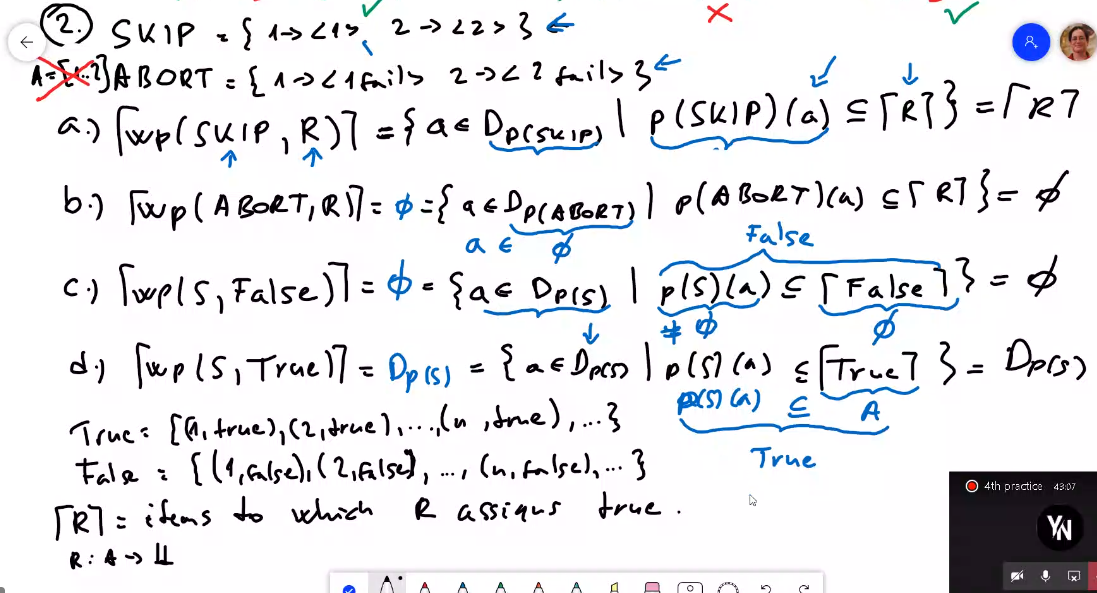 2. SKIP = { 1→<1>, 2→<2> } ←
A=[1..2] ABORT = { 1→<1 fail> 2→<2 fail> } ←
a.) ⌈wp(SKIP, R)⌉ = { a ∈ D_p(SKIP) | p(SKIP)(a) ⊆ ⌈R⌉ } = ⌈R⌉
b.) ⌈wp(ABORT, R)⌉ = ϕ = { a ∈ D_p(ABORT) | p(ABORT)(a) ⊆ ⌈R⌉ } = ϕ
a ∈ ϕ
False
c.) ⌈wp(S, False)⌉ = ϕ = { a ∈ D_p(S) | p(S)(a) ⊆ ⌈False⌉ } = ϕ
≠ ϕ ϕ
d.) ⌈wp(S, True)⌉ = D_p(S) = { a ∈ D_p(S) | p(S)(a) ⊆ ⌈True⌉ } = D_p(S)
p(S)(a) ⊆ A
True = {(1, true), (2, true), ..., (n, true), ...}
True
False = {(1, false), (2, false), ..., (n, false), ...}
⌈R⌉ = items to which R assigns true.
R : A → 𝕃
4th practice 43:07
YN